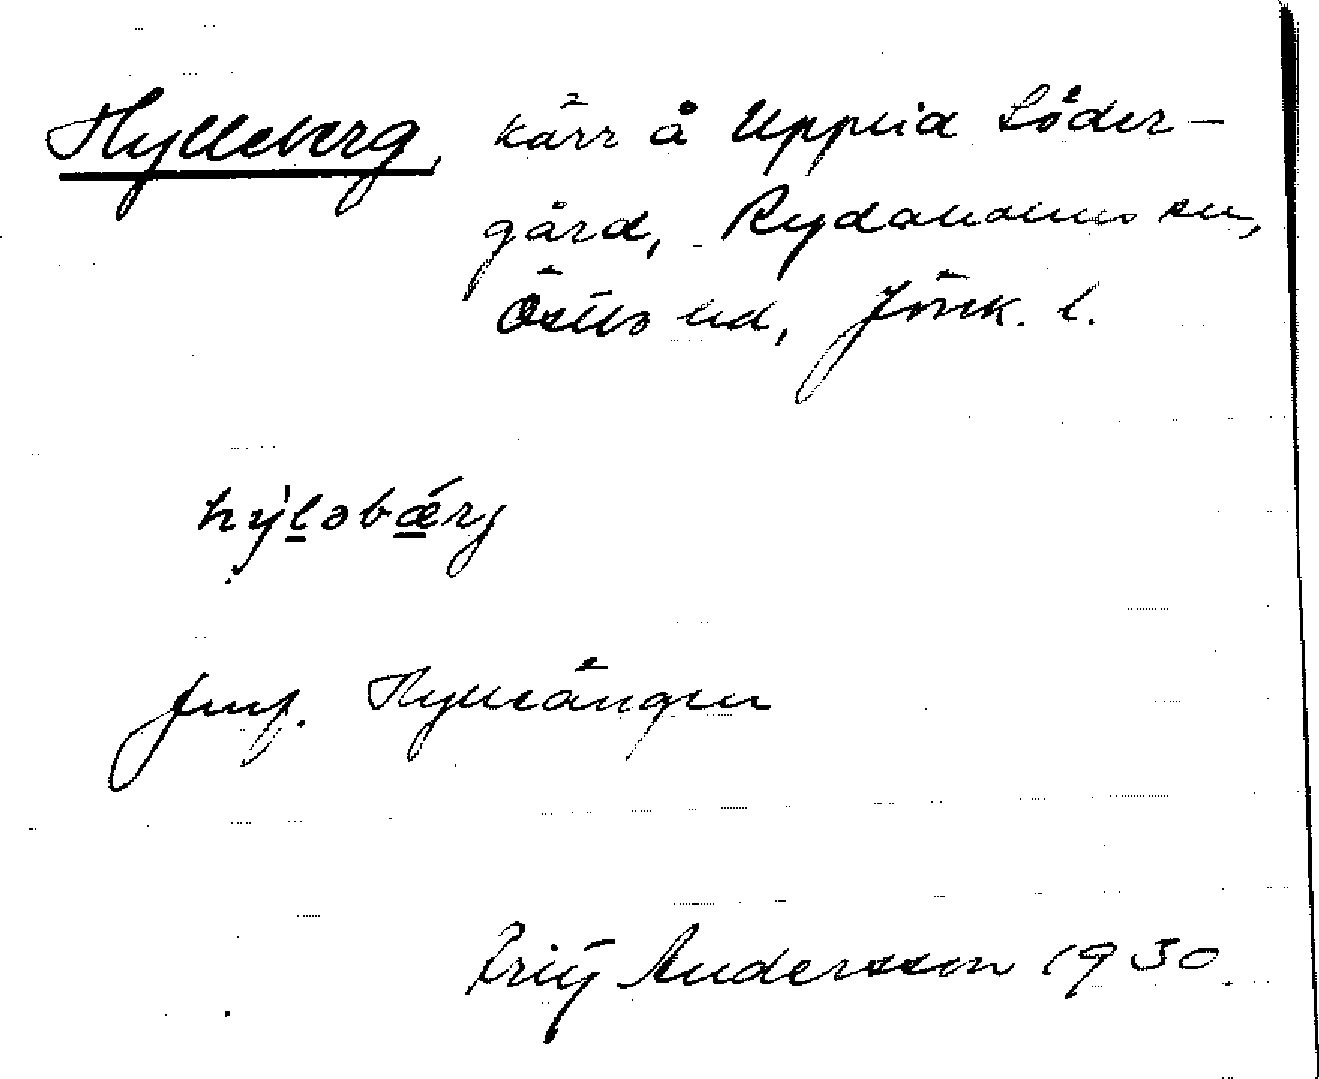 Hylleberg, kärr å Upplid Söder-
gård, Rydaholms sn,
Östbo hd, Jönk. l.
hy̍ləbærj
Jmf. Hylleängen
Fritz Andersson 1930.